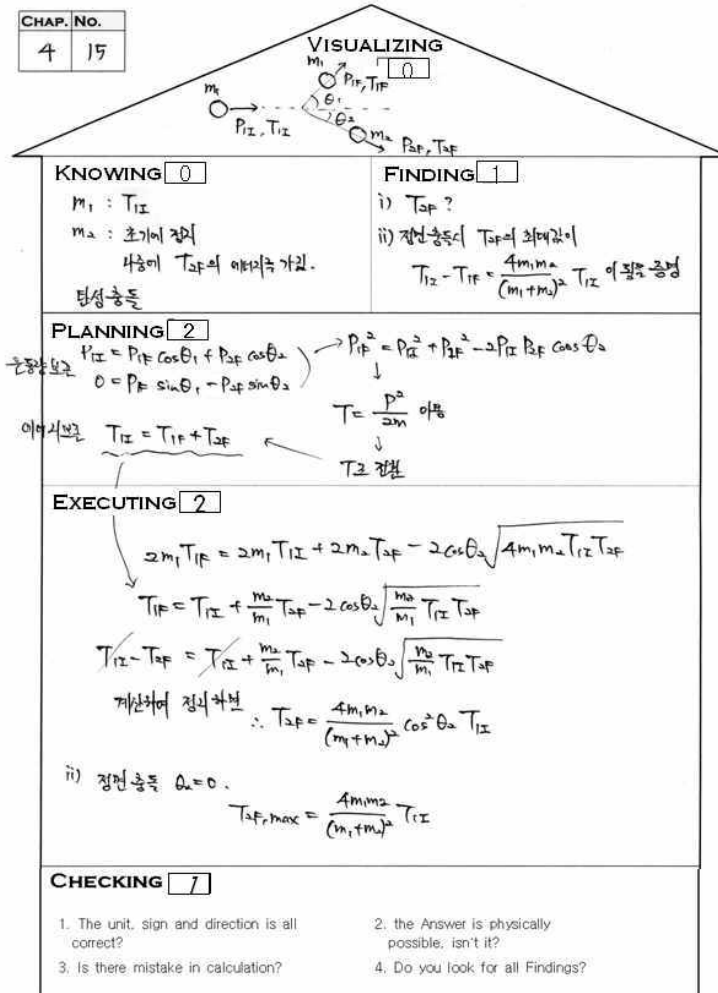 CHAP. No.
4 15
VISUALIZING 0
m₁
P₁I, T₁I
m₁
P₁F, T₁F
θ₁
θ₂
m₂
P₂F, T₂F
KNOWING 0
m₁ : T₁I
m₂ : 초기에 정지
나중에 T₂F의 에너지를 가짐.
탄성충돌
FINDING 1
i) T₂F ?
ii) 정면충돌시 T₂F의 최대값이
T₁I - T₁F = 4m₁m₂/(m₁+m₂)² T₁I 이 됨을 증명
PLANNING 2
운동량보존 P₁I = P₁F cosθ₁ + P₂F cosθ₂
0 = P₁F sinθ₁ - P₂F sinθ₂
→ P₁F² = P₁I² + P₂F² - 2P₁I P₂F cosθ₂
↓
T = P²/2m 이용
↓
T로 전환
에너지보존 T₁I = T₁F + T₂F
EXECUTING 2
2m₁T₁F = 2m₁T₁I + 2m₂T₂F - 2cosθ₂√(4m₁m₂T₁I T₂F)
T₁F = T₁I + m₂/m₁ T₂F - 2cosθ₂√(m₂/m₁ T₁I T₂F)
T₁I - T₂F = T₁I + m₂/m₁ T₂F - 2cosθ₂√(m₂/m₁ T₁I T₂F)
계산하여 정리하면 ∴ T₂F = 4m₁m₂/(m₁+m₂)² cos²θ₂ T₁I
ii) 정면충돌 θ₂=0.
T₂F,max = 4m₁m₂/(m₁+m₂)² T₁I
CHECKING 1
1. The unit, sign and direction is all
correct?
2. the Answer is physically
possible, isn't it?
3. Is there mistake in calculation?
4. Do you look for all Findings?